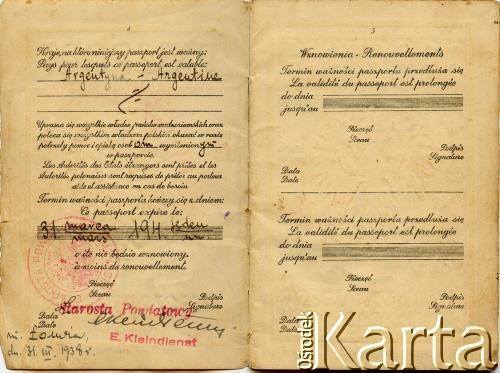 4
Kraje, na które niniejszy paszport jest ważny:
Pays pour lesquels ce passeport est valable:
Argentyna - Argentine
Uprasza się wszystkie władze państw cudzoziemskich oraz
poleca się wszystkim władzom polskim okazać w razie
potrzeby pomoc i opiekę osobom wymienionym
w paszporcie.
Les Autorités des Etats étrangers sont priées et les
Autorités polonaises sont requises de prêter au porteur
aide et assistance en cas de besoin.
Termin ważności paszportu kończy się z dniem:
Ce passeport expire le:
31 marca 194 jeden
mars un
o ile nie będzie wznowiony.
à moins de renouvellement.
Pieczęć
Sceau
Podpis
Signature
Data
Date
Starosta Powiatowy
E. Kleindienst
m. Żółkwia,
dn. 31. III. 1938 r.
5
Wznowienia - Renouvellements
Termin ważności paszportu przedłuża się
La validité du passeport est prolongée
do dnia
jusqu'au
Pieczęć
Sceau
Podpis
Signature
Data
Date
Termin ważności paszportu przedłuża się
La validité du passeport est prolongée
do dnia
jusqu'au
Pieczęć
Sceau
Podpis
Signature
Data
Date
Ośrodek
Karta